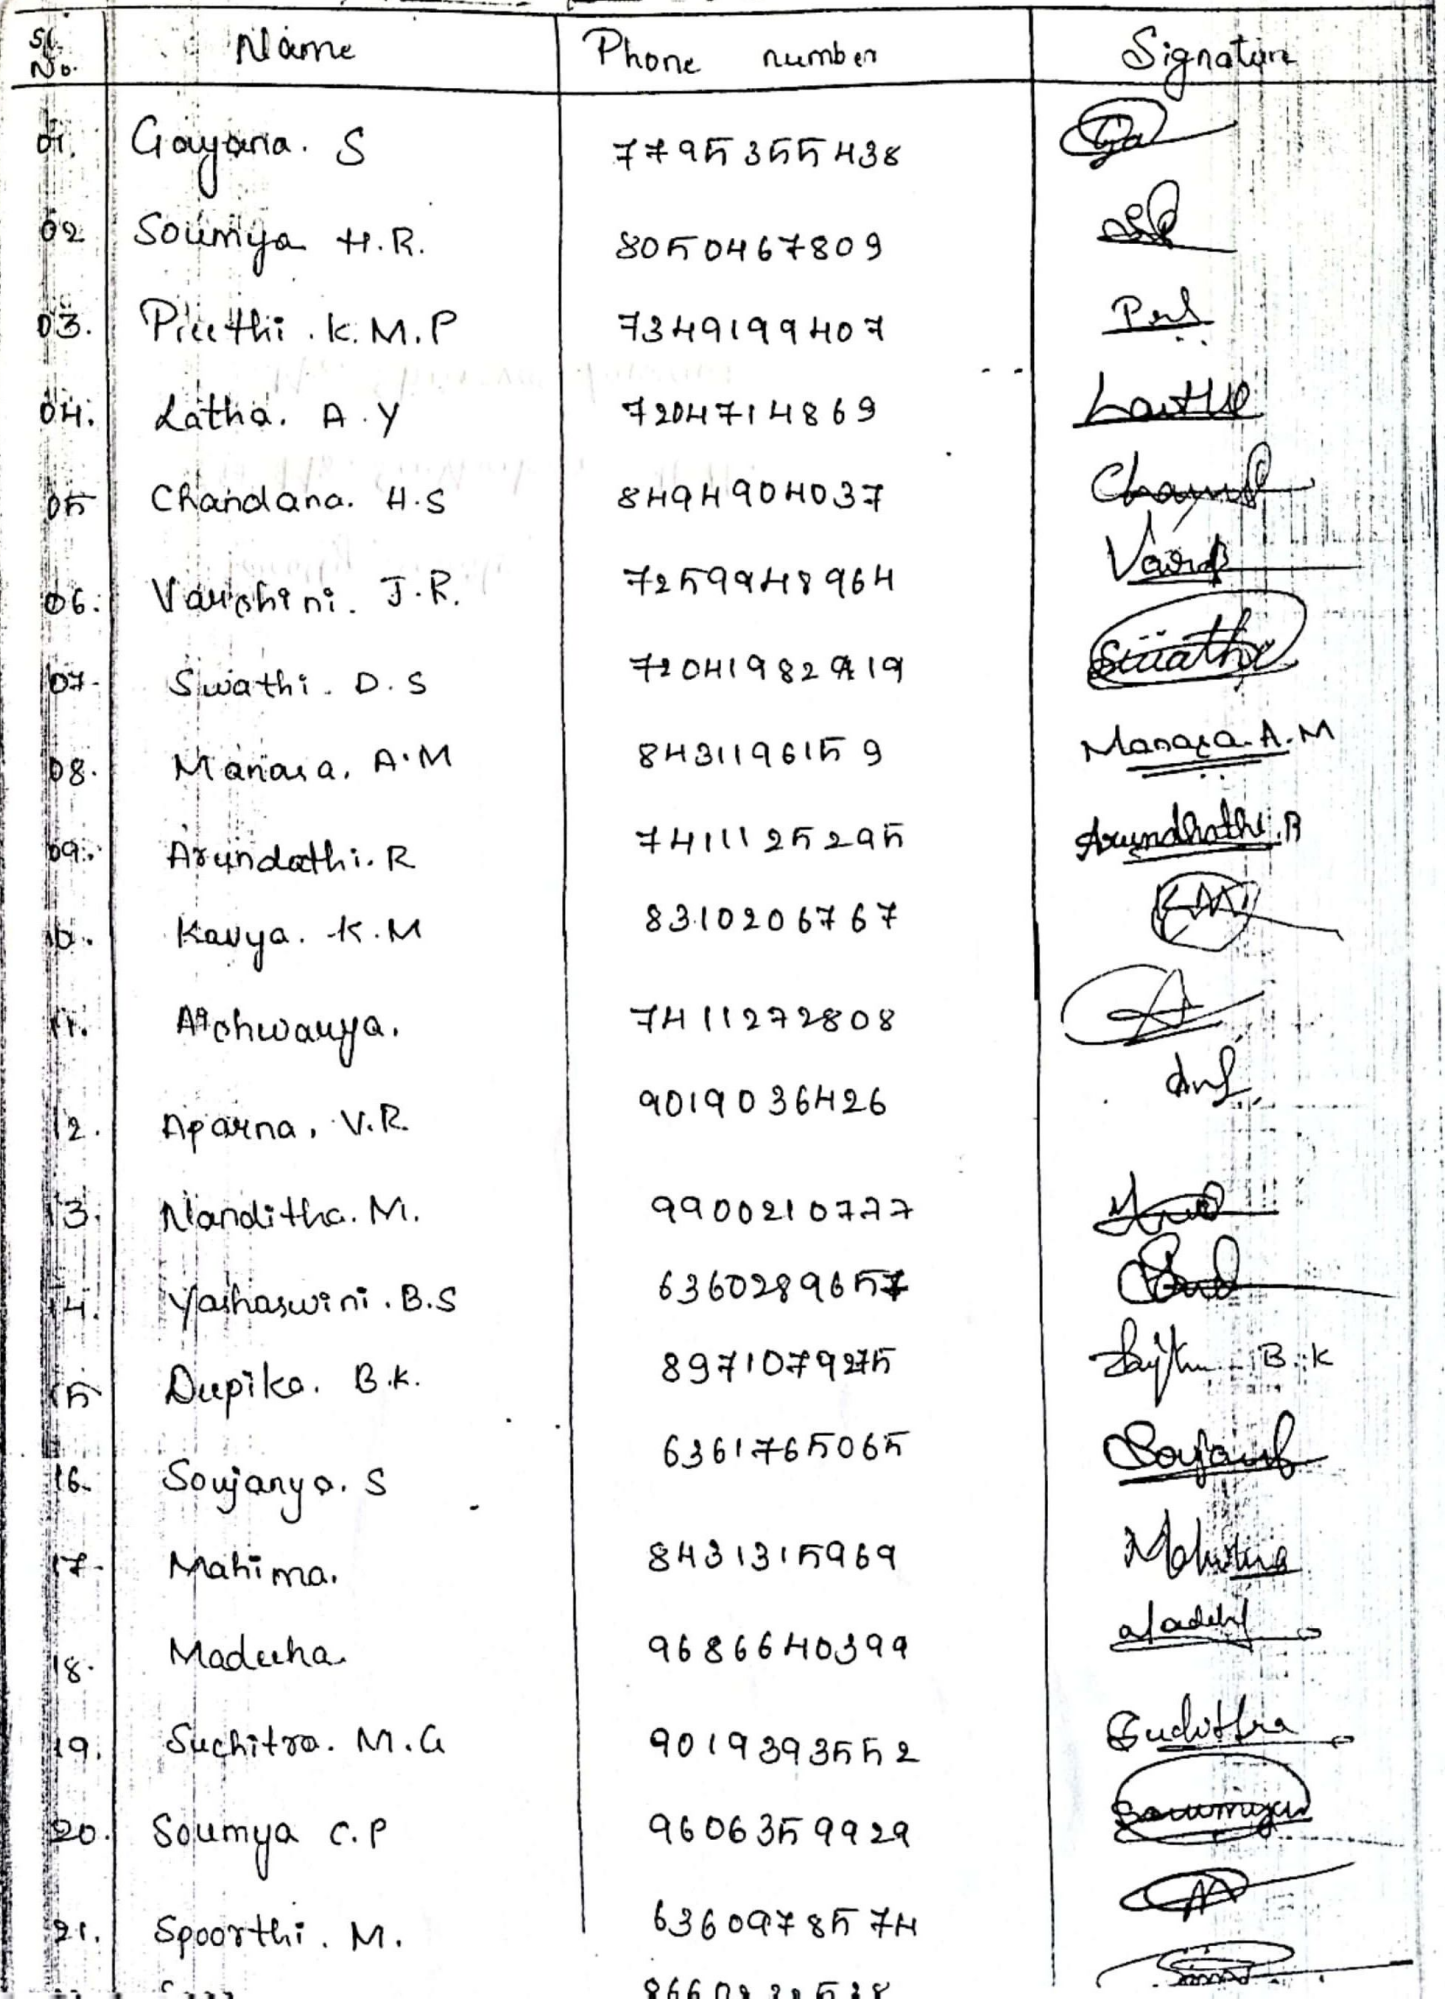 Sl. No. Name Phone number Signature
01. Gayana. S 7795355438
02 Soumya H.R. 8050467809
03. Preethi . K. M. P 7349199407
04. Latha. A . Y 7204714869
05 Chandana. H.S 8494904037
06. Varshini. J.R. 7259948964
07. Swathi. D. S
08. Manasa. A.M 8431196159 Manasa. A. M
09. Arundathi. R 7411125295 Arundhathi. R
10. Kavya. K. M 8310206767
11. Aishwarya. 7411272808
12. Aparna, V.R. 9019036426
13. Nanditha. M. 9900210777
14. Yashaswini . B.S 6360289657
15 Deepika. B.K. 8971079275 B.K
16. Soujanya. S 6361765065
17. Mahima. 8431315969
18. Madeeha 9686640399
19. Suchitra. M. G 9019393552
20. Soumya C.P 9606359929
21. Spoorthi . M. 6360978574